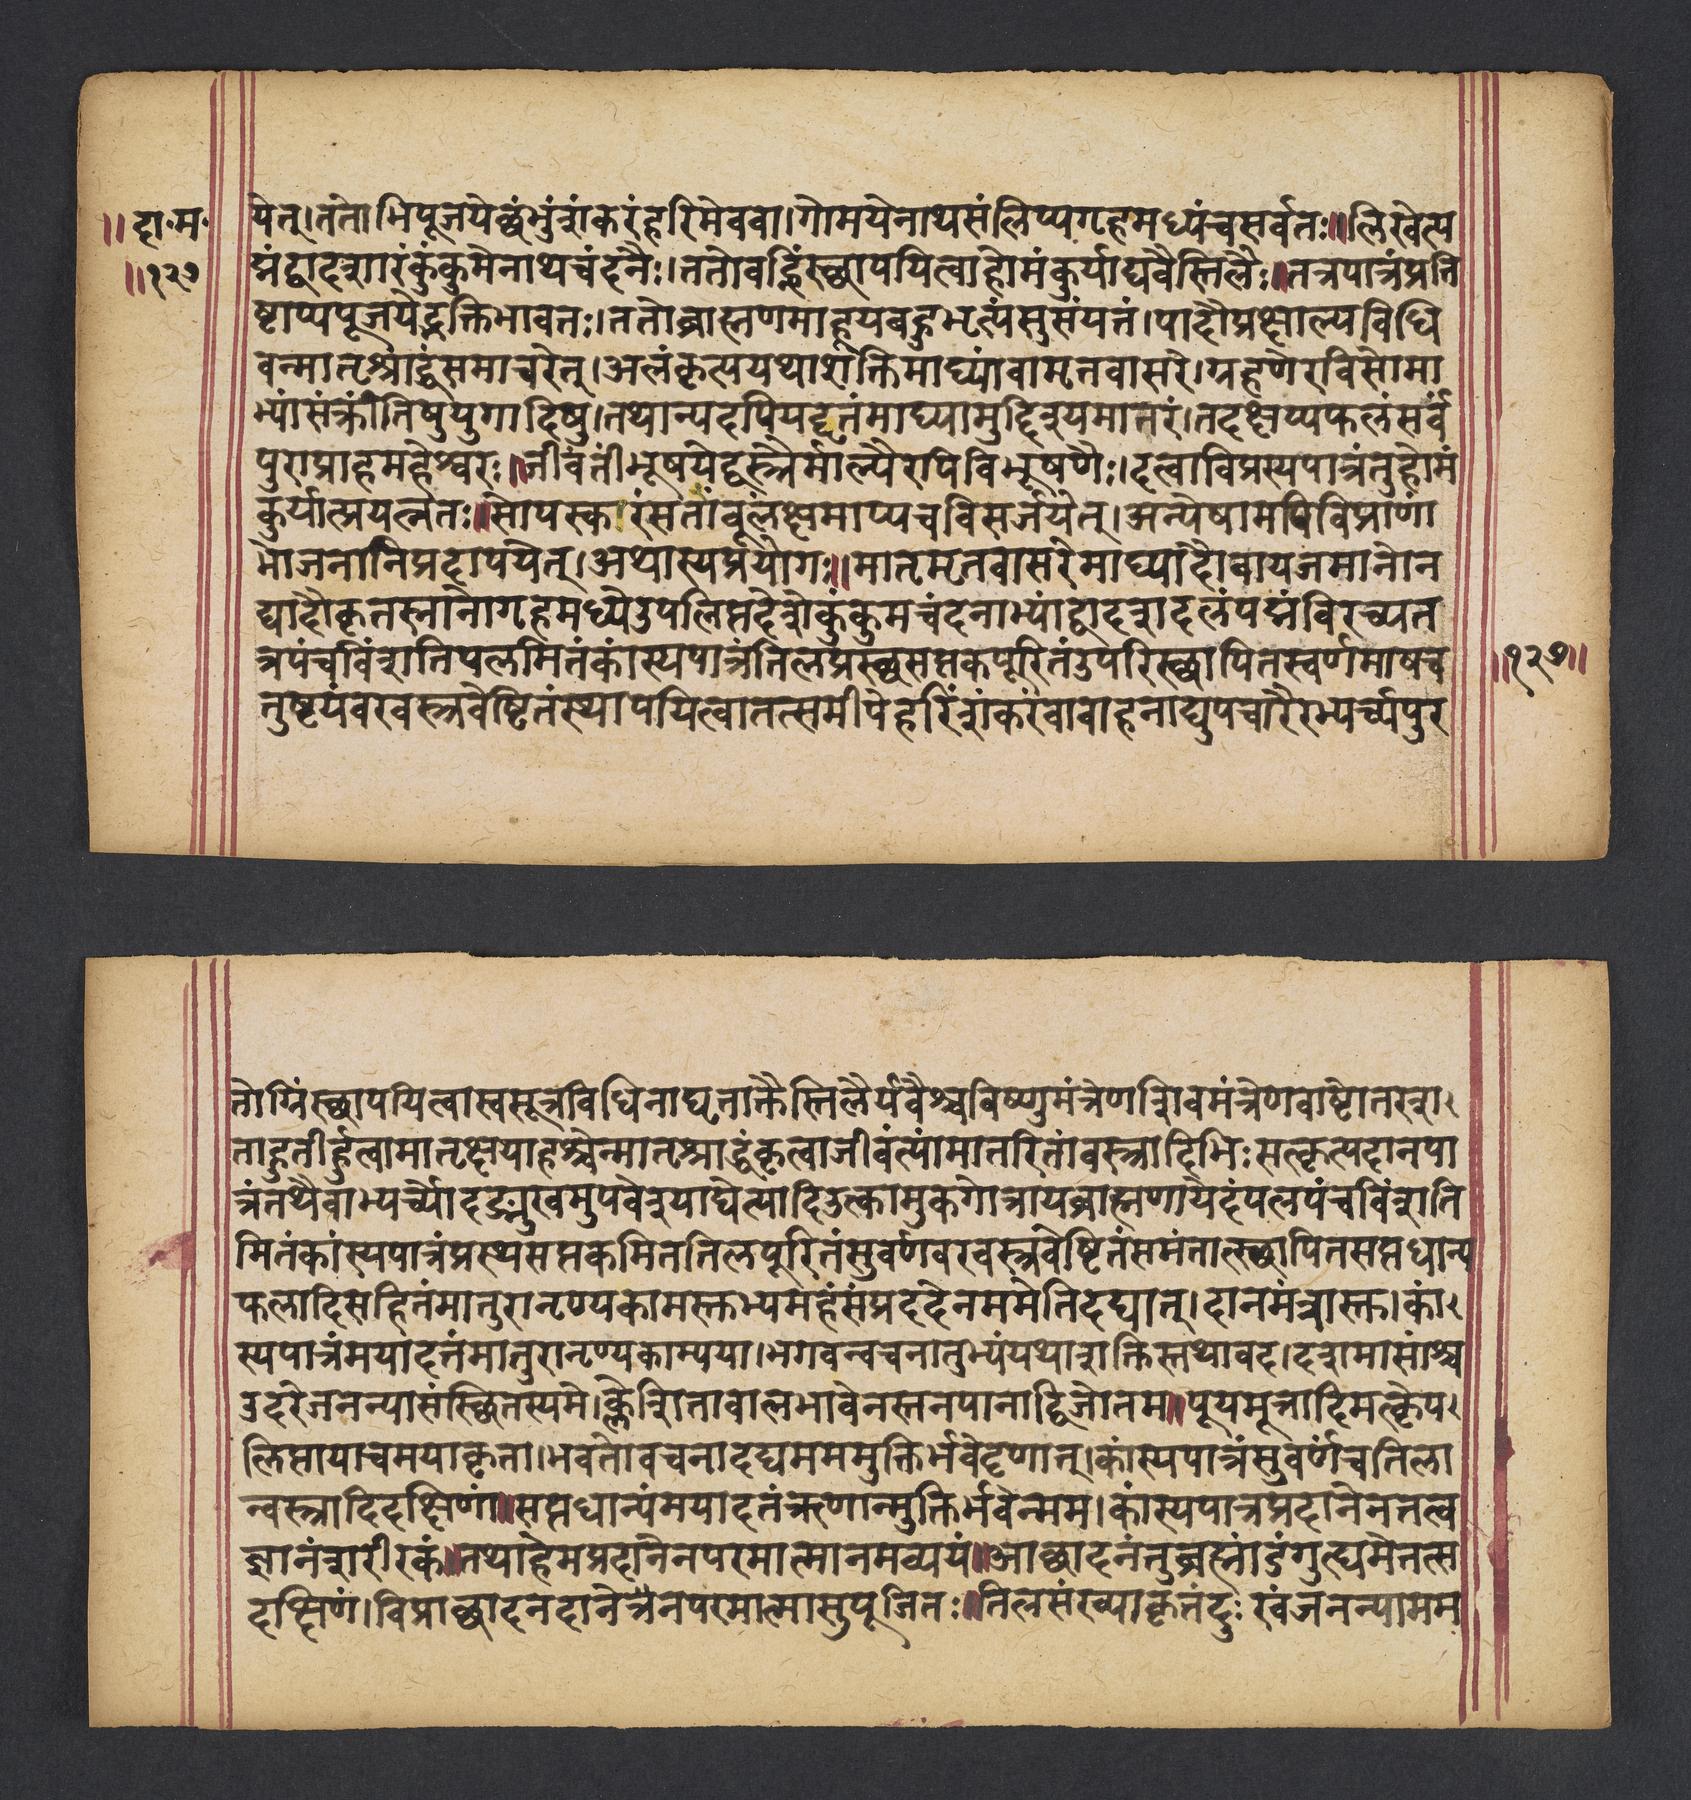 ॥दा॰म॰
॥१२७
येत्।ततोभिपूजयेच्छंभुंशंकरंहरिमेववा।गोमयेनाथसंलिप्यगृहमध्यंचसर्वतः॥लिखेत्प
द्मंद्वादशारंकुंकुमेनाथचंदनैः।ततोवह्निंस्थापयित्वाहोमंकुर्याद्यवैस्तिलैः॥तत्रपात्रंप्रति
ष्टाप्यपूजयेद्भक्तिभावतः।ततोब्राह्मणमाहूयबहुभृत्यंसुसंयतं।पादौप्रक्षाल्यविधि
वन्मातृश्राद्धंसमाचरेत्।अलंकृत्ययथाशक्तिमाघ्यांवामृतवासरे।ग्रहणेरविसोमा
भ्यांसंक्रांतिषुयुगादिषु।तथान्यदपियद्दत्तंमाघ्यामुद्दिश्यमातरं।तदक्षय्यफलंसर्वं
पुराप्राहमहेश्वरः॥जीवंतींभूषयेद्वस्त्रैर्माल्यैरपिविभूषणैः।दत्वाविप्रस्यपात्रंतुहोमं
कुर्यात्प्रयत्नतः॥सोपस्कारंसतांबूलंक्षमाप्यचविसर्जयेत्।अन्येषामपिविप्राणां
भोजनानिप्रदापयेत्।अथास्यप्रयोगः॥मातृमृतवासरेमाघ्यादौवायजमानोन
द्यादौकृतस्नानोगृहमध्येउपलिप्तदेशेकुंकुमचंदनाभ्यांद्वादशदलंपद्मंविरच्यत
त्रपंचविंशतिपलमितंकांस्यपात्रंतिलप्रस्थसप्तकपूरितंउपरिस्थापितस्वर्णमाषच
तुष्टयंवरवस्त्रवेष्टितंस्थापयित्वातत्समीपेहरिंशंकरंवावाहनाद्युपचारैरभ्यर्च्यपुर
॥१२७॥
तोग्निंस्थापयित्वास्वसूत्रविधिनाघृताक्तैस्तिलैर्यवैश्चविष्णुमंत्रेणशिवमंत्रेणवाष्टोतरश
ताहुतीर्हुत्वामातृक्षयाहश्चेन्मातृश्राद्धंकृत्वाजीवंत्यांमातरितांवस्त्रादिभिःसत्कृत्यदानपा
त्रंतथैवाभ्यर्च्योदङ्मुखमुपवेश्याद्येत्यादिउत्कामुकगोत्रायब्राह्मणायेदंपलपंचविंशति
मितंकांस्यपात्रंप्रस्थसप्तकमिततिलपूरितंसुवर्णवरवस्त्रवेष्टितंसमंतात्स्थापितसप्तधान्य
फलादिसहितंमातुरानृण्यकामस्तुभ्यमहंसंप्रददेनममेतिदद्यात्।दानमंत्रास्तु।कां
स्यपात्रंमयादत्तंमातुरानृण्यकाम्यया।भगवन्वचनात्तुभ्यंयथाशक्तिस्तथावद।दशमासांश्च
उदरेजनन्यासंस्थितस्यमे।क्लेशितावालभावेनस्तनपानाद्द्विजोतम॥पूयमूत्रादिमत्कृेप
लिप्तायाचमयाकृता।भवतोवचनादद्यमममुक्तिर्भवेदृणात्।कांस्यपात्रंसुवर्णंचतिला
न्वस्त्रादिदक्षिणां॥सप्तधान्यंमयादतंऋणान्मुक्तिर्भवेन्मम।कांस्यपात्रप्रदानेनतत्व
ज्ञानंशरीरकं॥तथाहेमप्रदानेनपरमात्मानमव्ययं॥आच्छादनंतुब्रह्मांडंगुत्द्यमेतत्स
दक्षिणं।विप्राच्छादनदानेत्रेनपरमात्मासुपूजितः॥तिलसंख्याकृतंदुःखंजनन्यामम